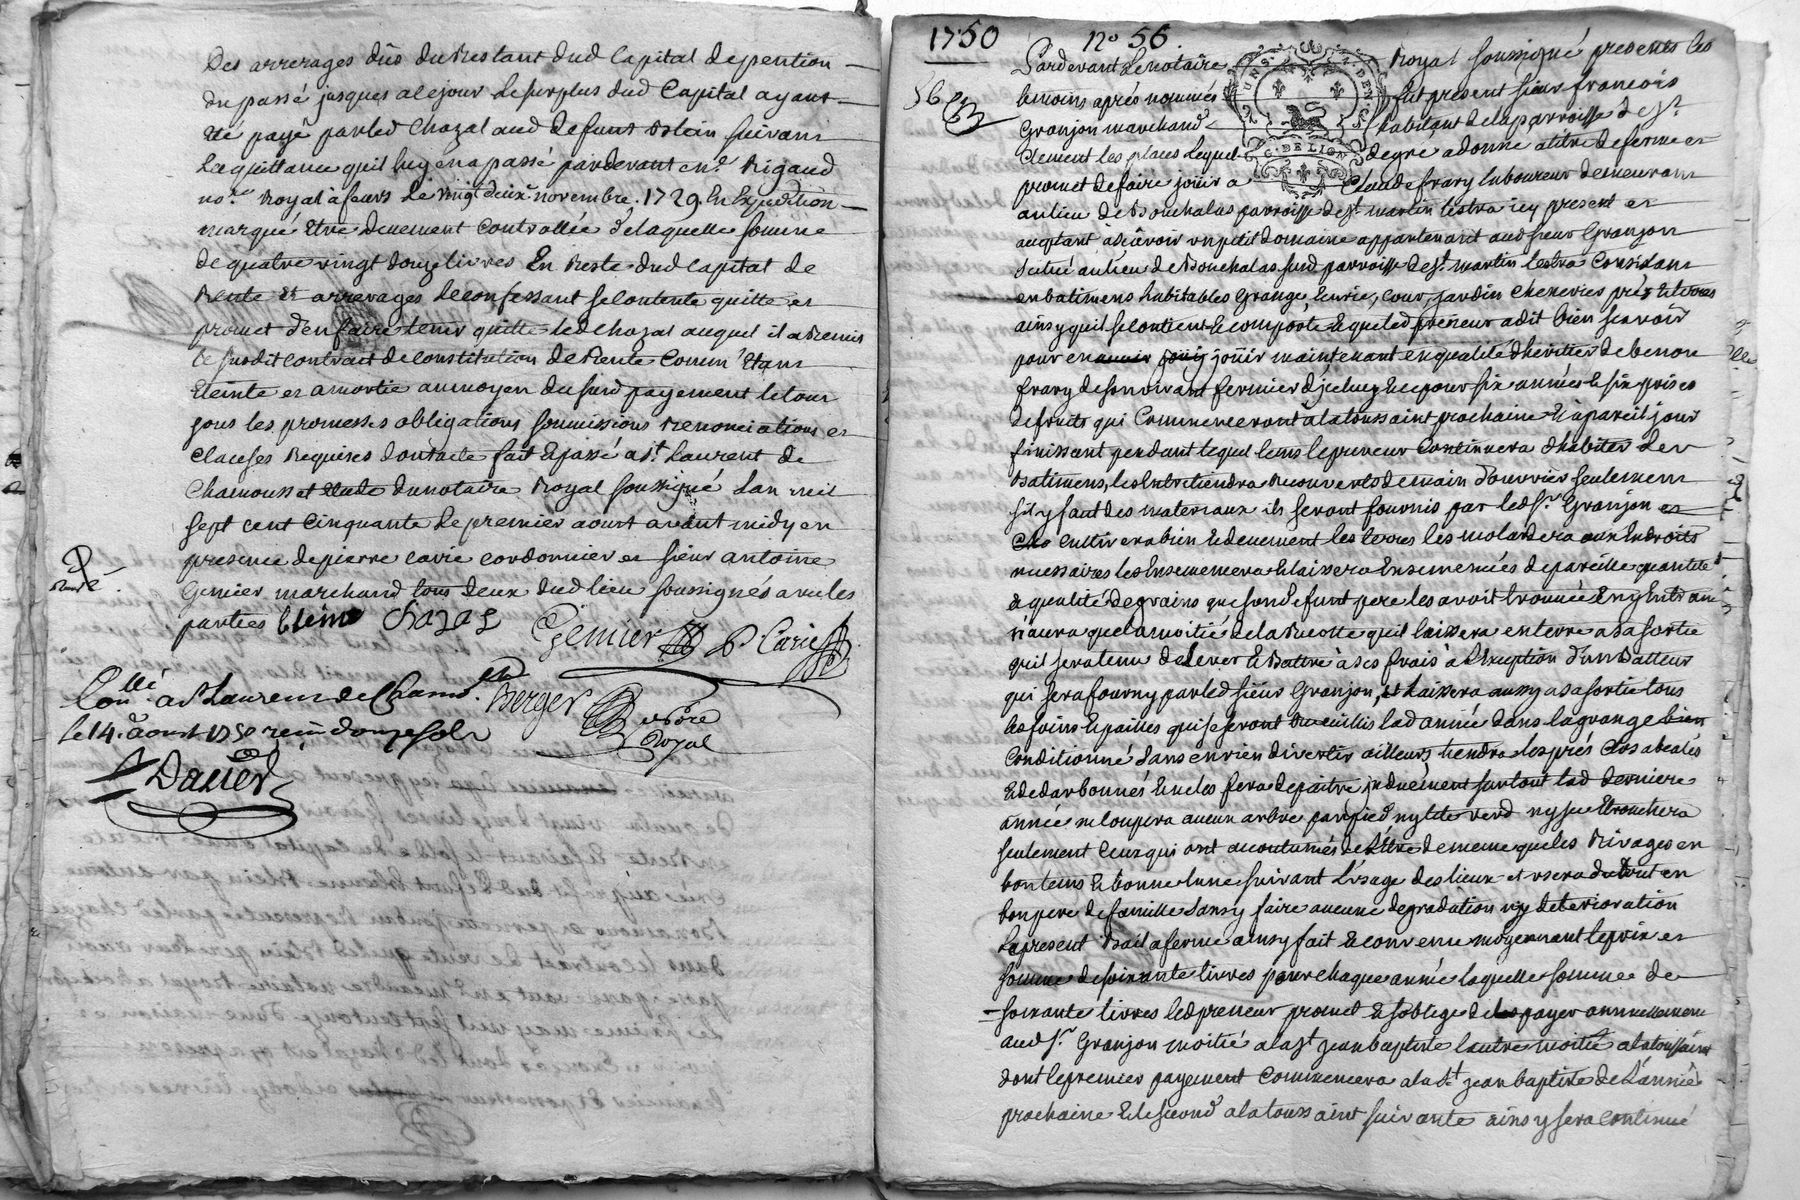 Des arrerages dûs du Restant dud Capital de pention
du passé jusques a ce jour Le surplus dud Capital ayant
eté payé par led Chazal aud defunt Blein suivant
La quittance quil luy en a passé pardevant m.e Rigaud
no.re Royal à feurs Le vingt deux novembre 1729 En Expedition
marqué Etre Duement Controllée de laquelle somme
de quatre vingt douze livres En Reste dud Capital de
Rente et arrerages Le confessant se contente quitte et
promet d'en faire tenir quitte led Chazal auquel il a Remis
Le susdit contract de constitution de Rente comm' Etant
Eteinte et amortie au moyen du susd payement le tout
sous les promesses obligations soumissions Renonciations et
Clauses Requises dont acte fait & passé a s.t Laurent de
Chamousset Etude du notaire Royal soussigné Lan mil
sept cent Cinquante Le premier aoust avant midy en
presence de pierre Carie cordonnier et sieur antoine
Genier marchand tous deux dud lieu soussignés avec les
parties blein Chazal Genier P Carie
Con.llé a s Laurent de Cham.
le 14 aoust 1750 reçu douze sols
Berger
no.re
Royal
1750 no 56.
56
Pardevant Le notaire Royal soussigné presents les
temoins après nommés fut present sieur francois
Granjon marchand habitant de la parroisse de St
Clement les places Lequel de gre a donné a titre de ferme et
promet de faire joüir a Claude frary laboureur demeurant
au lieu de Bouchalas parroisse de St martin lestra icy present et
acceptant à sçavoir un petit domaine appartenant aud sieur Granjon
situé au lieu de Bouchalas susd parroisse de St martin lestra Consistant
en batimens habitables Grange, Ecurie, cour, jardin Cheneviers prés & terres
ainsy quil se contient & comporte & que led preneur a dit bien sçavoir
pour en joüir maintenant en qualité d'heritier de benoit
frary de son vivant fermier d'jceluy & ce pour six années & six prises
de fruits qui Commenceront à la toussaint prochaine & à pareil jour
finissant pendant lequel tems le preneur Continuera d'habiter Les
Batimens, les Entretiendra Recouverts de main d'ouvrier seulement
s'il y faut des materiaux ils seront fournis par led Sr. Granjon et
Cultivera bien & deuement les terres les aux Endroits
necessaires les Ensemencera & laissera Ensemencés de pareille quantité
& qualité de grains que son defunt pere les avoit trouvée En y Entrant
n'aura que la moitié de la Recolte quil laissera en terre a sa sortie
quil sera tenu de Lever & Battre à ses frais à l'Exception d'un Batteur
qui sera fourny par led sieur Granjon, et Laissera aussy a sa sortie tous
les foins & pailles qui se seront Recueillis lad année dans la grange bien
Conditionné sans en rien divertir ailleurs, tiendra les prés Clos
& de darbonnés & ne les fera depaitre jnduement surtout lad derniere
année ne coupera aucun arbre par pied ny tete verd ny sec Etronchera
seulement Ceux qui ont accoutumés de L'etre de meme que les Rivages en
bon tems & bonne lune suivant L'usage des lieux et usera du tout en
bon pere de famille sans y faire aucune degradation ny deterioration
Le present Bail a ferme ainsy fait & convenu moyennant le prix et
somme de soixante livres pour chaque année laquelle somme de
soixante livres led preneur promet & s'oblige de payer annuellement
aud Sr. Granjon moitié a la St jean baptiste l'autre moitié a la toussaint
dont le premier payement Commencera a la St jean baptiste de L'année
prochaine & le second a la toussaint suivante ainsy sera continué